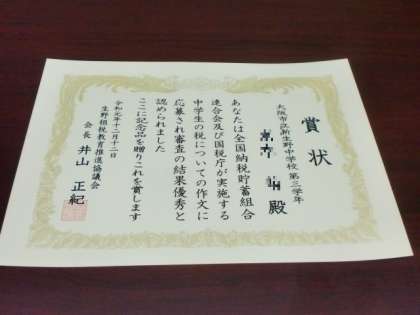 賞状
大阪市立新生野中学校 第三学年
殿
あなたは全国納税貯蓄組合
連合会及び国税庁が実施する
中学生の税についての作文に
応募され審査の結果優秀と
認められました
ここに記念品を贈りこれを賞します
令和元年十二月十二日
生野租税教育推進協議会
会長 井山 正紀